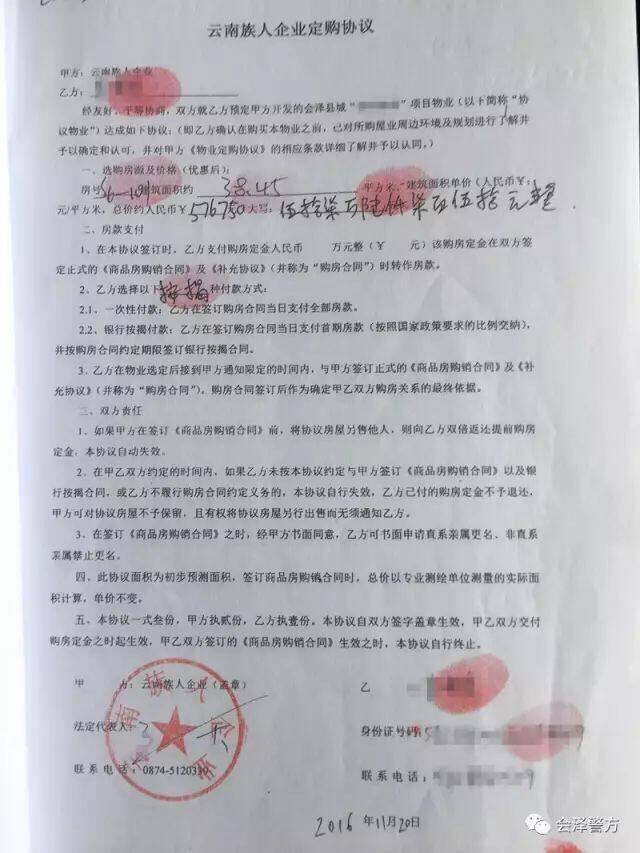 云南族人企业定购协议
甲方：云南族人企业
乙方：
经友好、平等协商，双方就乙方预定甲方开发的会泽县城“ ”项目物业（以下简称“协
议物业”）达成如下协议：（即乙方确认在购买本物业之前，已对所购屋业周边环境及规划进行了解并
予以确定和认可，并对甲方《物业定购协议》的相应条款详细了解并予以认同。）
一、选购房源及价格（优惠后）：
房号 建筑面积约 38.45 平方米，建筑面积单价（人民币￥：
元/平方米，总价约人民币￥576750 大写：伍拾柒万陆仟柒百伍拾元整
二、房款支付
1、在本协议签订时，乙方支付购房定金人民币 万元整（￥ 元）该购房定金在双方签
定正式的《商品房购销合同》及《补充协议》（并称为“购房合同”）时转作房款。
2、乙方选择以下按揭种付款方式：
2.1、一次性付款：乙方在签订购房合同当日支付全部房款。
2.2、银行按揭付款：乙方在签订购房合同当日支付首期房款（按照国家政策要求的比例交纳），
并按购房合同约定期限签订银行按揭合同。
3、乙方在物业选定后接到甲方通知限定的时间内，与甲方签订正式的《商品房购销合同》及《补
充协议》（并称为“购房合同”），购房合同签订后作为确定甲乙双方购房关系的最终依据。
三、双方责任
1、如果甲方在签订《商品房购销合同》前，将协议房屋另售他人，则向乙方双倍返还提前购房
定金，本协议自动失效。
2、在甲乙双方约定的时间内，如果乙方未按本协议约定与甲方签订《商品房购销合同》以及银
行按揭合同，或乙方不履行购房合同约定义务的，本协议自行失效，乙方已付的购房定金不予退还，
甲方可对协议房屋不予保留，且有权将协议房屋另行出售而无须通知乙方。
3、在签订《商品房购销合同》之时，经甲方书面同意，乙方可书面申请直系亲属更名、非直系
亲属禁止更名。
四、此协议面积为初步预测面积，签订商品房购销合同时，总价以专业测绘单位测量的实际面
积计算，单价不变。
五、本协议一式叁份，甲方执贰份，乙方执壹份。本协议自双方签字盖章生效，甲乙双方交付
购房定金之时起生效，甲乙双方签订的《商品房购销合同》生效之时，本协议自行终止。
甲 方：云南族人企业（盖章） 乙
法定代表人： 身份证号码：
联系电话：0874-5120339 联系电话：
云南族人企业
2016年11月20日
会泽警方